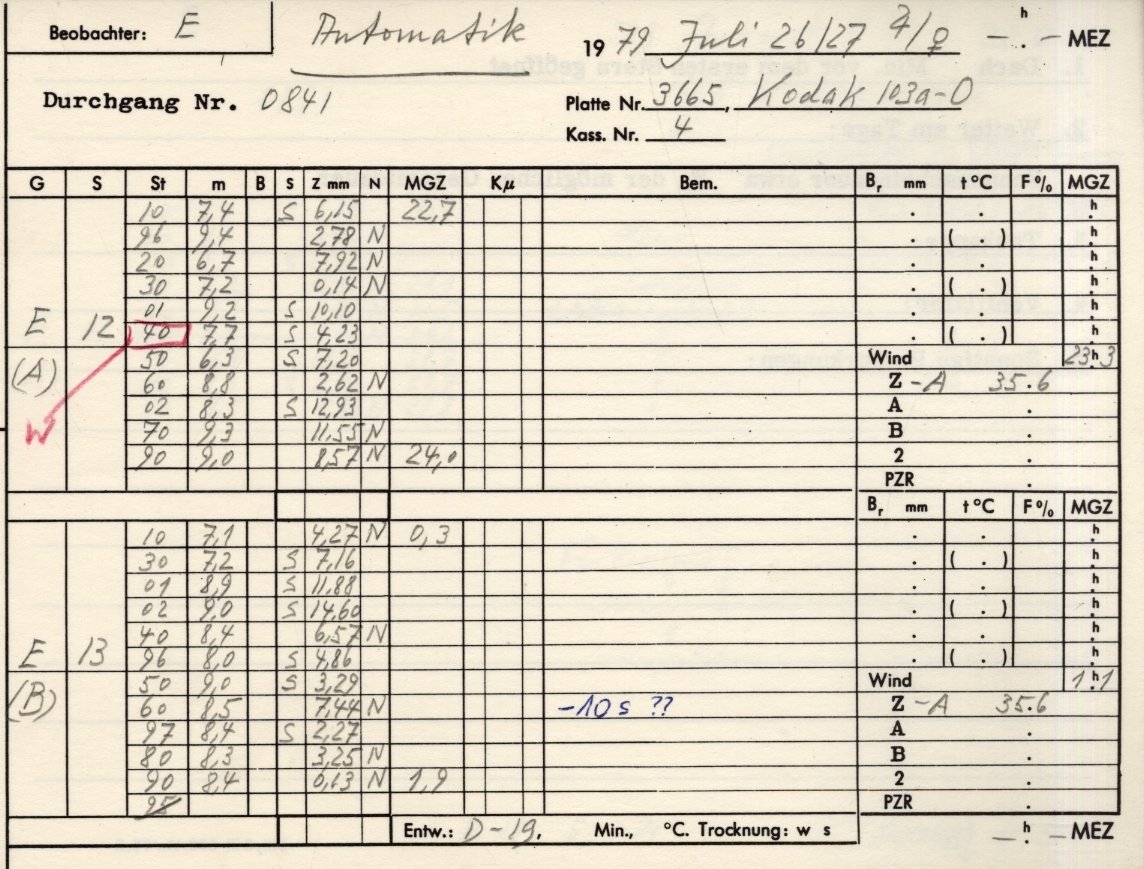 Beobachter: E Automatik 1979 Juli 26/27 ♃/♀ — . — MEZ
Durchgang Nr. 0841 Platte Nr. 3665, Kodak 103a-O
Kass. Nr. 4
G S St m B S Z mm N MGZ Kμ Bem. Br mm t°C F% MGZ
10 7,4 S 6,15 22,7 . . h
96 9,4 2,78 N . ( . ) h
20 6,7 7,92 N . . h
30 7,2 0,14 N . ( . ) h
01 9,2 S 10,10 . . h
E 12 40 7,7 S 4,23 . ( . ) h
(A) 50 6,3 S 7,20 Wind 23h3
60 8,8 2,62 N Z -A 35.6
02 8,3 S 12,93 A .
W 70 9,3 11,55 N B .
90 9,0 8,57 N 24,0 2 .
PZR .
Br mm t°C F% MGZ
10 7,1 4,27 N 0,3 . . h
30 7,2 S 7,16 . ( . ) h
01 8,9 S 11,88 . . h
02 9,0 S 14,60 . ( . ) h
40 8,4 6,57 N . . h
E 13 96 8,0 S 4,86 . ( . ) h
(B) 50 9,0 S 3,29 Wind 1h1
60 8,5 7,44 N -10 s ?? Z -A 35.6
97 8,4 S 2,27 A .
80 8,3 3,25 N B .
90 8,4 0,13 N 1,9 2 .
PZR .
Entw.: D-19. Min., °C. Trocknung: w s — h — MEZ